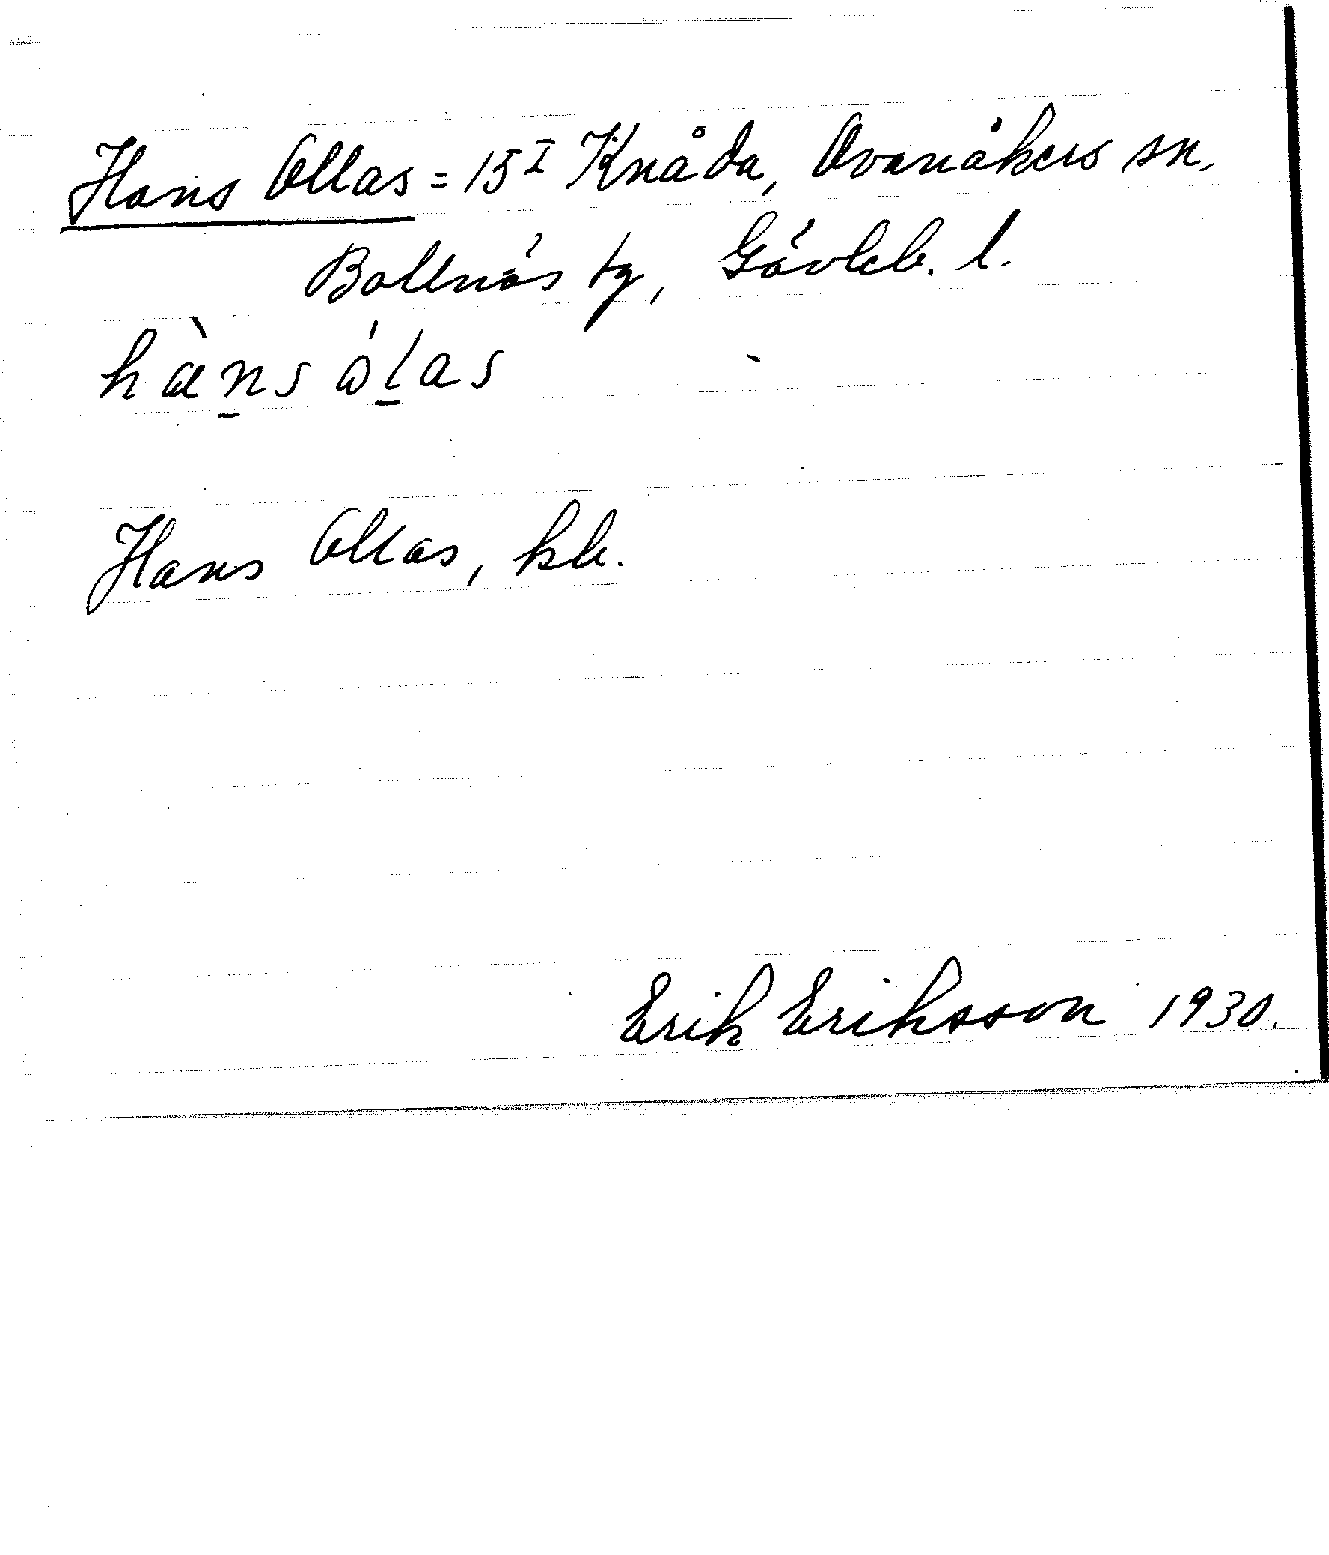 Hans Ollas = 15 I Knåda, Ovanåkers sn,
Bollnäs tg, Gävleb. l.
hàn̲s ól̲as
Hans Ollas, kb.
Erik Eriksson 1930.